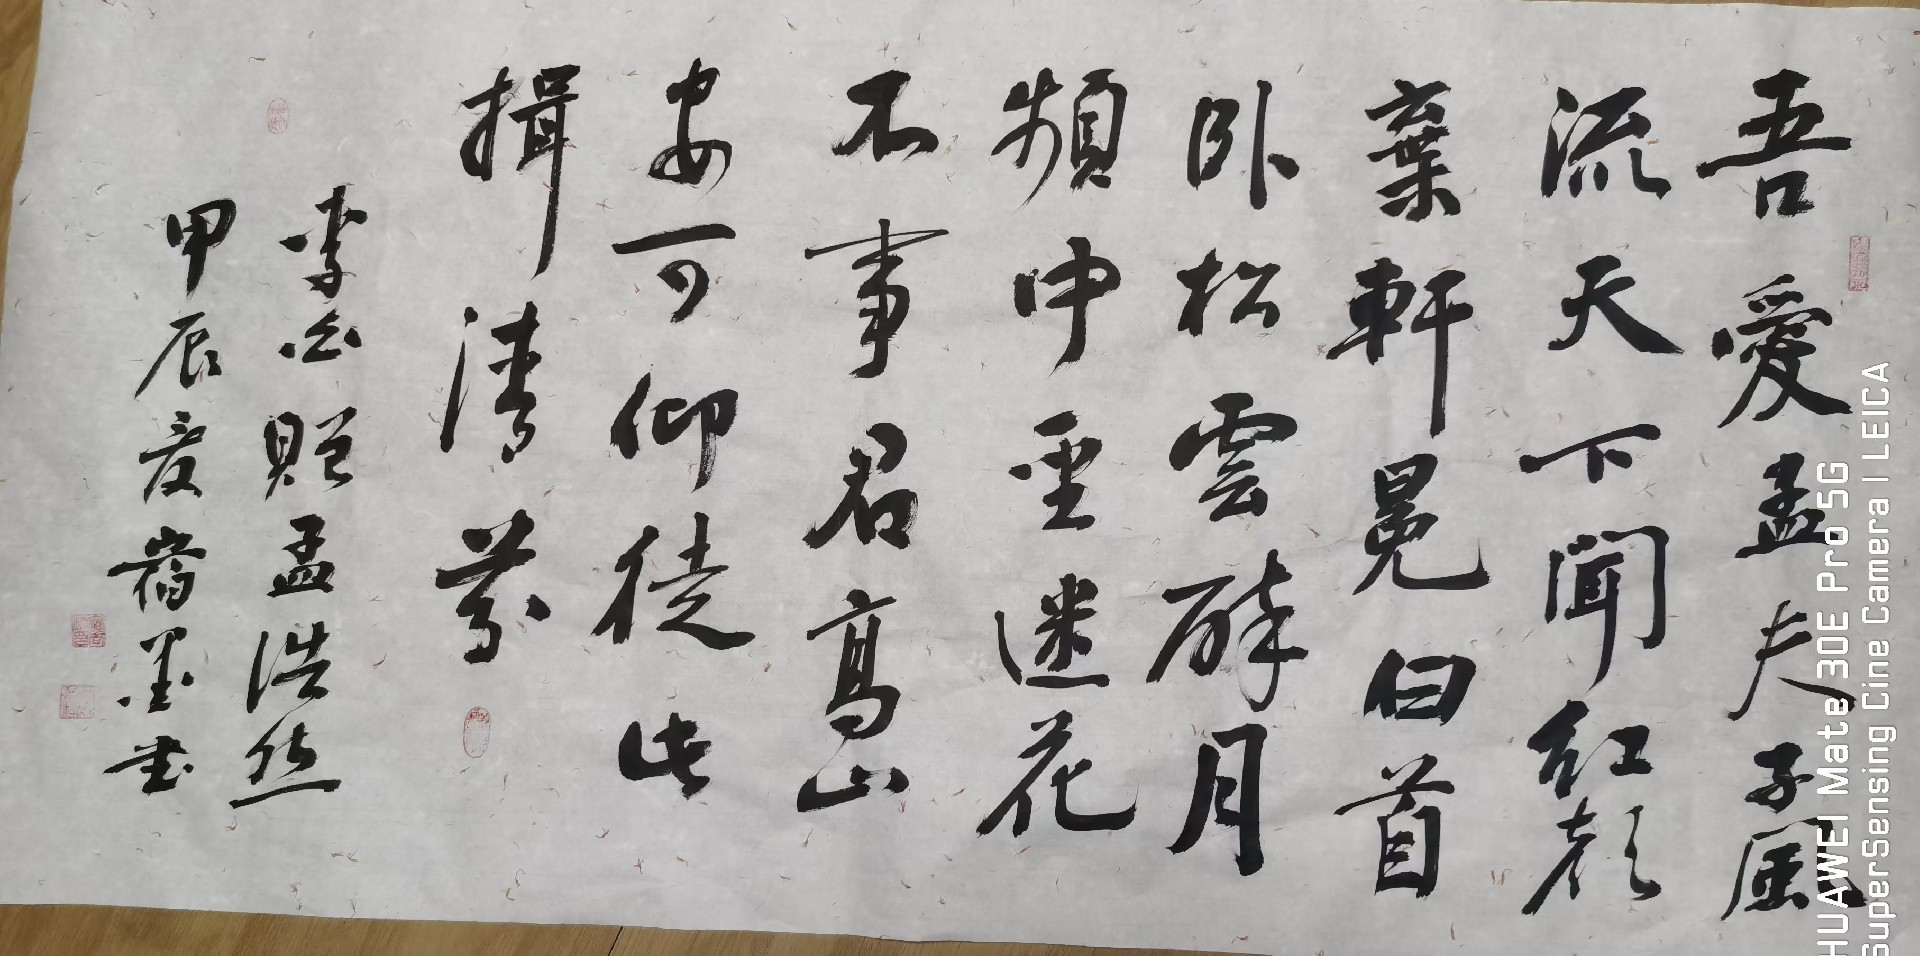 吾愛孟夫子風
流天下聞紅顏
棄軒冕白首
卧松雲醉月
頻中聖迷花
不事君高山
安可仰徒此
揖清芬
李白贈孟浩然
甲辰夏墨書
HUAWEI Mate 30E Pro 5G
SuperSensing Cine Camera | LEICA